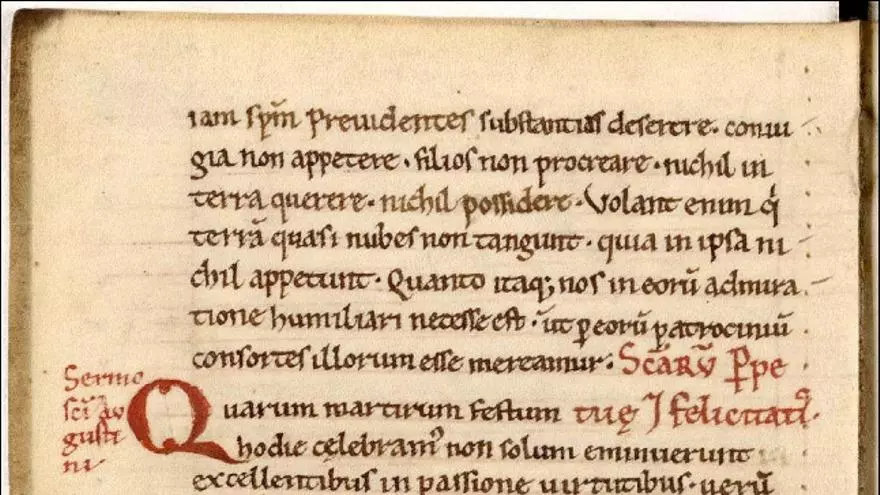 iam sym̄ Previdentes substantias deserere. coniu
gia non appetere. filios non procreare. nichil in
terra querere. nichil possidere. Volant enim q̇
terrā quasi nubes non tangunt. quia in ipsa ni
chil appetunt. Quanto itaq; nos in eorū admira
tione humiliari necesse est. ūt ꝑ eorū patrociniū
consortes illorum esse mereamur. Sc̄arū Ꝑpe
tuę ⁊ felicitatiꝰ.
Sermo
sc̄i au
gusti
ni
Quarum martirum festum
hodie cęlebramꝰ non solum emicuerunt
excellentibus in passione virtutibus. verū